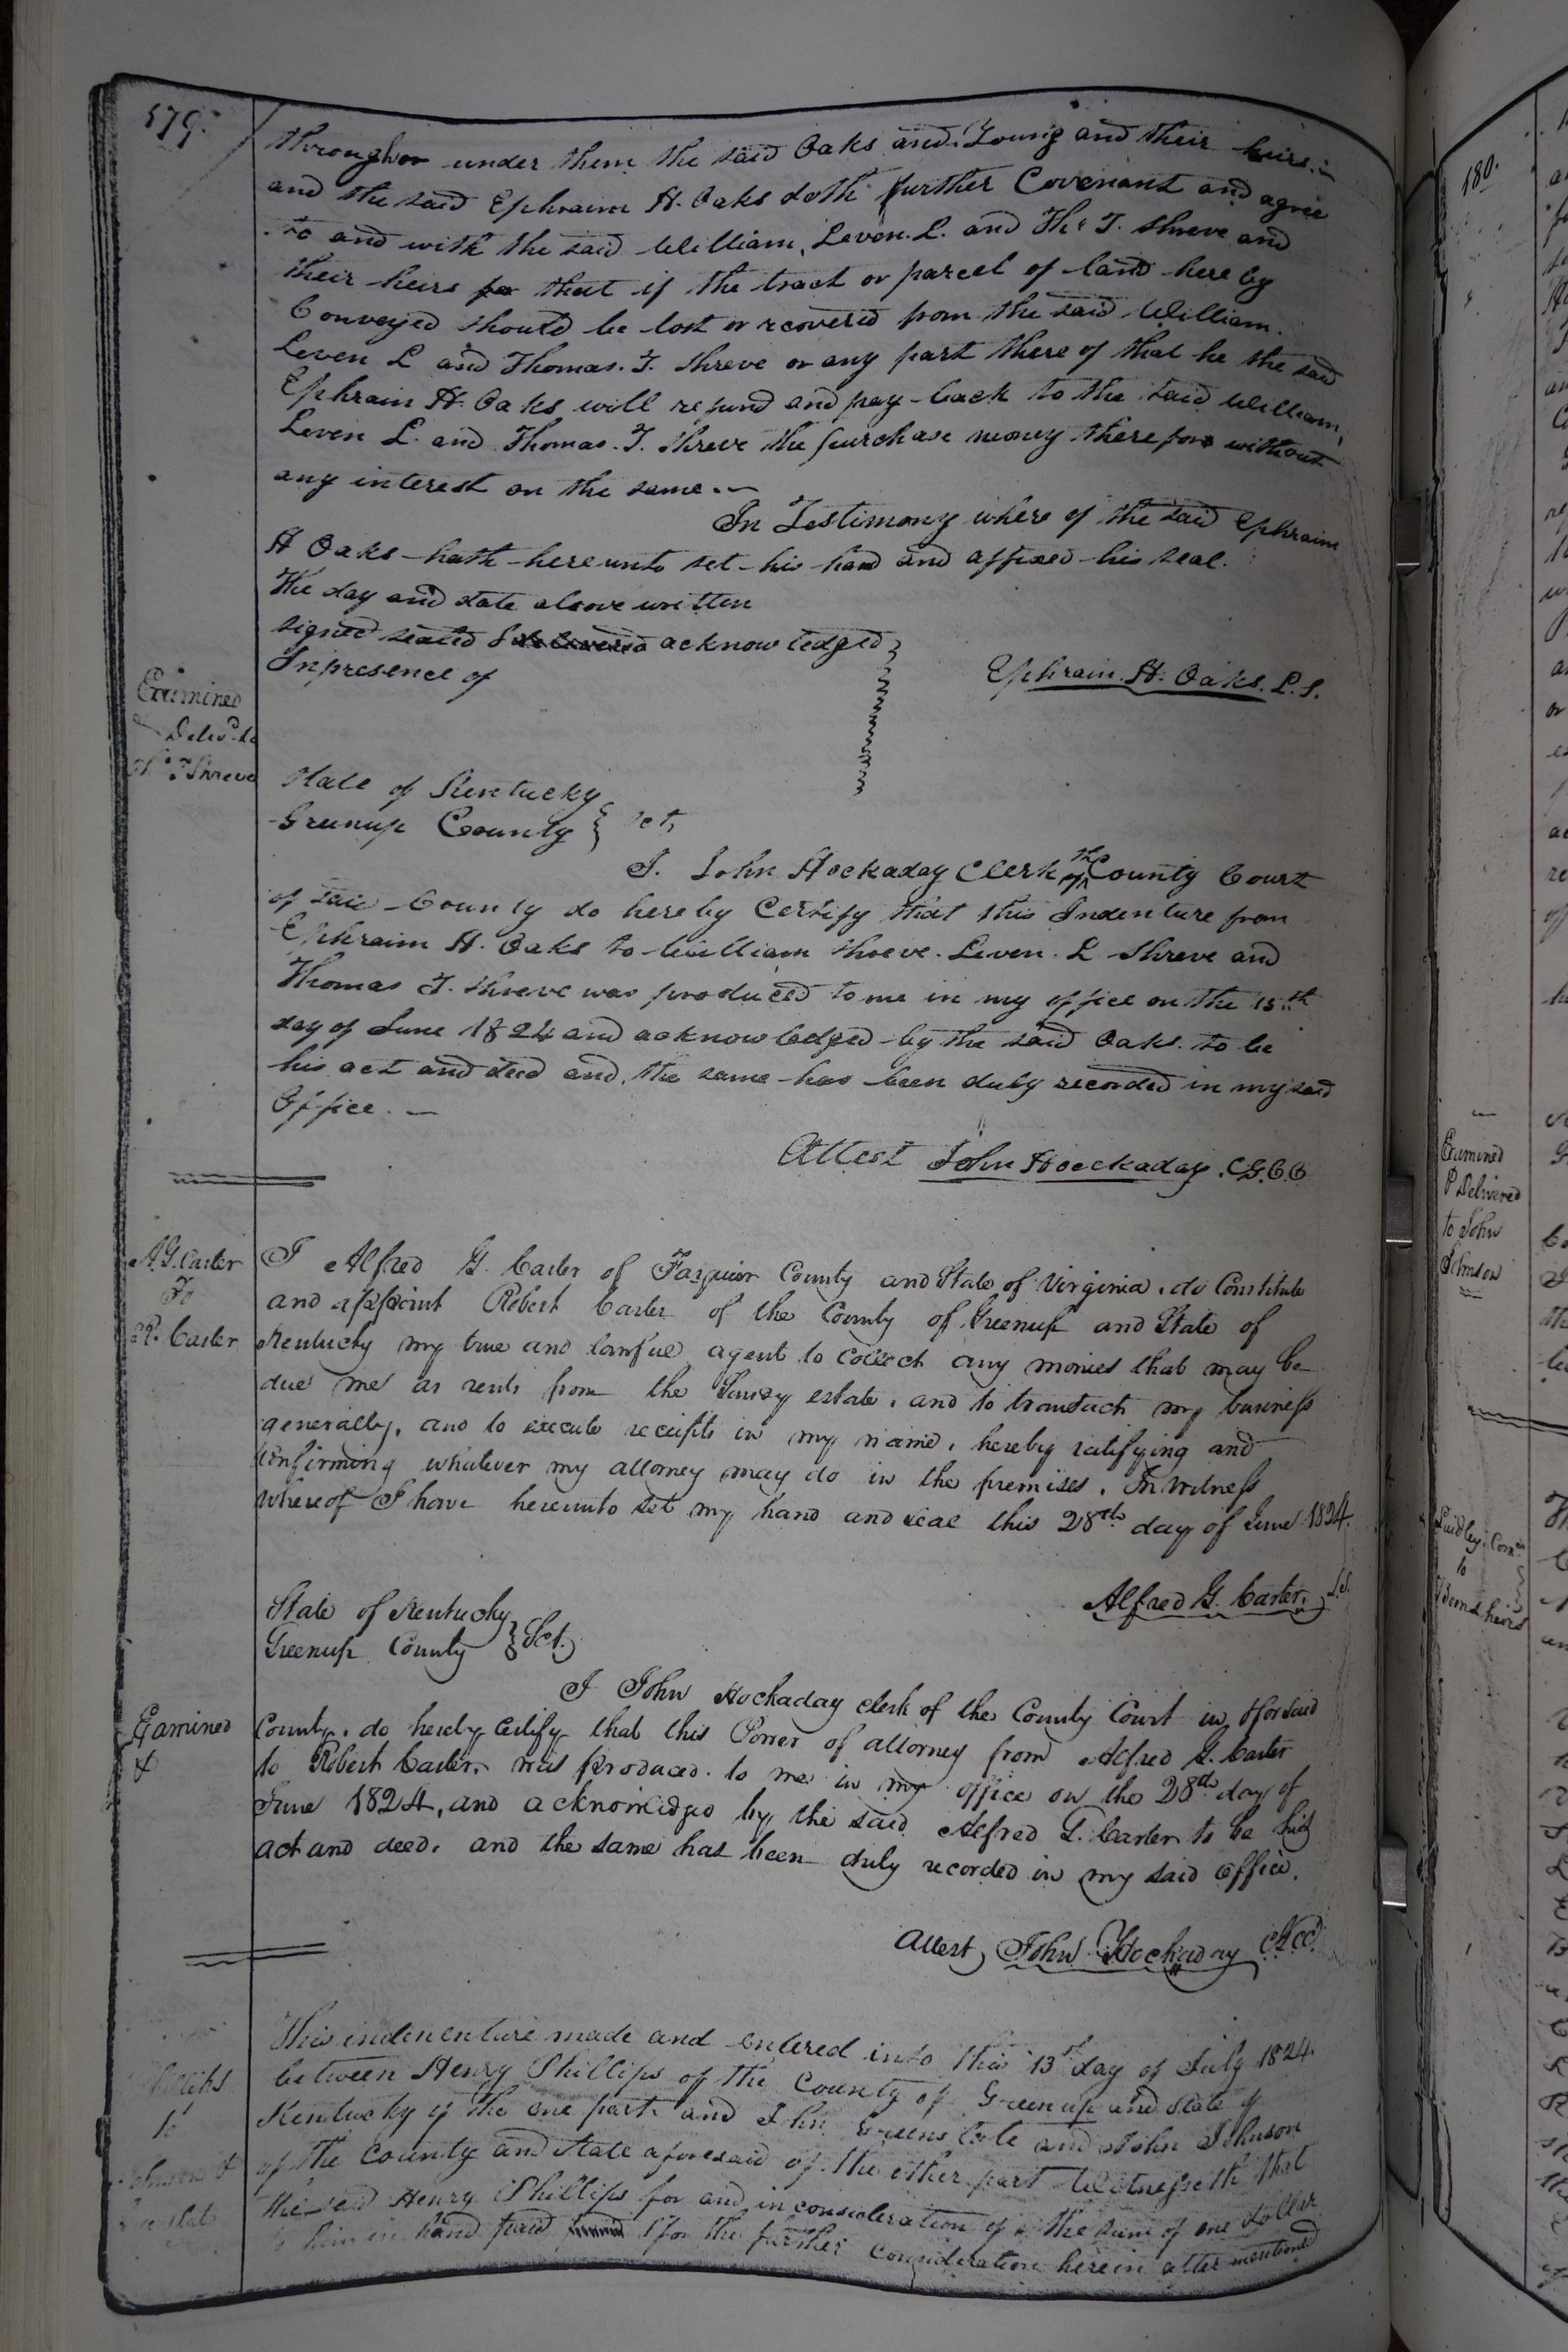 179.
through or under them the said Oaks and Young and their heirs.
and the said Ephraim H. Oaks doth further Covenant and agree
to and with the said William, Leven. L. and Ths T. Shreve and
their heirs for that if the tract or parcel of land here by
Conveyed should be lost or recovered from the said William.
Leven L and Thomas. T. Shreve or any part there of that he the said
Ephraim H. Oaks will refund and pay back to the said William,
Leven L. and Thomas. T. Shreve the purchase money there for without
any interest on the same.
In Testimony where of the said Ephraim
H Oaks hath hereunto set his hand and affixed his seal.
The day and date above written
signed sealed & delivered acknowledged
In presence of
Ephraim. H. Oaks. L.S.
Examined
Delivd to
Ths T Shreve
State of Kentucky
Greenup County } sct,
I. John Hockaday Clerk of the County Court
of said County do hereby Certify that this Indenture from
Ephraim H. Oaks to William Shreve. Leven. L Shreve and
Thomas T. Shreve was produced to me in my office on the 15th
day of June 1824 and acknowledged by the said Oaks. to be
his act and deed and the same has been duly recorded in my said
Office.
Attest John Hockaday. C.G.C.C
A.G. Carter
To
R. Carter
I Alfred G. Carter of Fauquier County and State of Virginia, do Constitute
and appoint Robert Carter of the County of Greenup and State of
Kentucky my true and lawful agent to collect any monies that may be
due me as rents from the estate, and to transact my business
generally, and to execute receipts in my name, hereby ratifying and
confirming whatever my attorney may do in the premises. In witness
whereof I have hereunto set my hand and seal this 28th day of June 1824.
Alfred G. Carter. L.S.
State of Kentucky
Greenup County } Sct.
I John Hockaday clerk of the County Court in aforsaid
Examined
&
County, do hereby Certify that this Power of attorney from Alfred G. Carter
to Robert Carter, was produced to me in my office on the 28th day of
June 1824, and acknowledged by the said Alfred G. Carter to be his
act and deed, and the same has been duly recorded in my said office.
Attest, John Hockaday CGCC
Phillips
to
Johnson &
This indenenture made and entered into this 13th day of July 1824.
between Henry Phillips of the County of Greenup and State of
Kentucky of the one part and John Greenslate and John Johnson
of the County and State aforesaid of the other part Witnesseth that
the said Henry Phillips for and in consideration of the sum of one dollar
to him in hand paid & for the further consideration herein after mentioned
180.
Examined
& Delivered
to John
Johnson
to
heirs